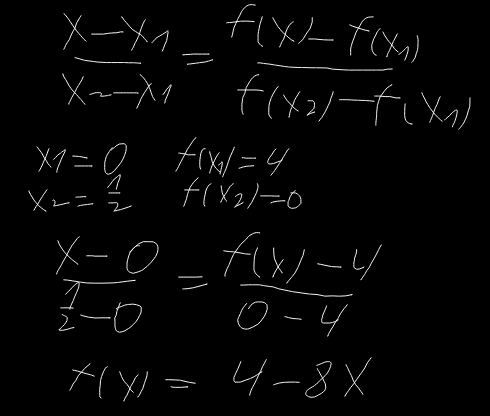 (x - x1)/(x2 - x1) = (f(x) - f(x1))/(f(x2) - f(x1))
x1 = 0 f(x1) = 4
x2 = 1/2 f(x2) = 0
(x - 0)/(1/2 - 0) = (f(x) - 4)/(0 - 4)
f(x) = 4 - 8x